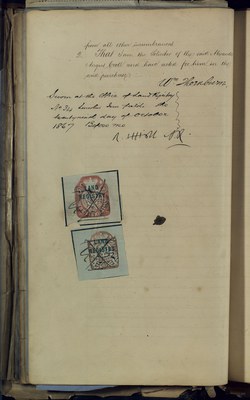 from all other incumbrances
2. That I am the Clerk of the said
and have acted for him in the
said purchase
Wm Thornburn
Sworn at the Office of Land Registry
No 34 Lincolns Inn fields the
day of October
1867 Before me
LAND
REGISTRY
LAND
REGISTRY